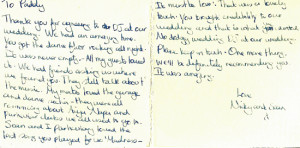 To Paddy
Thank you for agreeing to DJ at our
wedding. We had an amazing time.
You got the dance floor rocking all night.
It was never empty. All my guests loved
it. We had friends asking us where
we found you & they still talk about
the music. My mates loved the garage
and dance
remixing about
parties we all used to go to.
Sean and I particularly loved the
last song you played for us 'Madness -
It must be love'. That was a lovely
touch. You brought credibility to our
wedding and that is what you
No dodgy wedding DJ at our wedding.
Please keep in touch. One more thing,
we'll be definitely recommending you.
It was amazing.
Love
Nicky and Sean